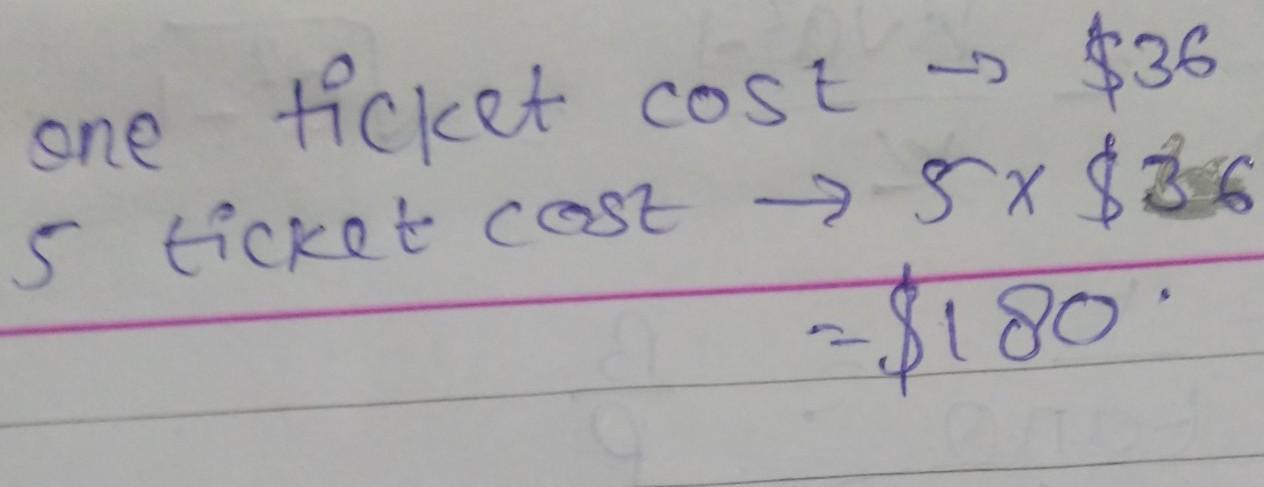 one ticket cost → $36
5 ticket cost → 5 x $36
= $180.